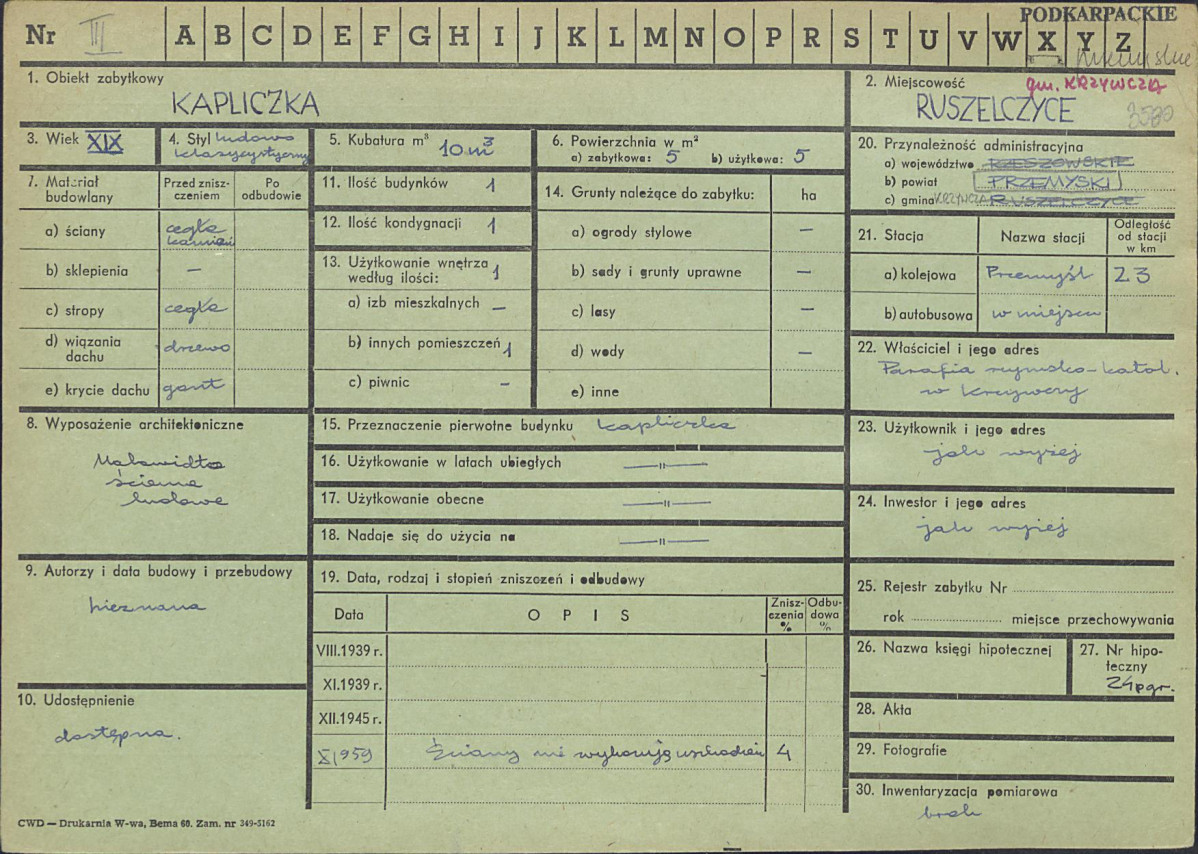 PODKARPACKIE
Nr III A B C D E F G H I J K L M N O P R S T U V W X Y Z
1. Obiekt zabytkowy
KAPLICZKA
2. Miejscowość
gm. KRZYWCZA
RUSZELCZYCE
3580
3. Wiek XIX
4. Styl ludowo
klasycystyczny
5. Kubatura m³ 10 m³
6. Powierzchnia w m²
a) zabytkowa: 5 b) użytkowa: 5
7. Materiał budowlany
Przed zniszczeniem
Po odbudowie
a) ściany cegła kamień
b) sklepienia —
c) stropy cegła
d) wiązania dachu drzewo
e) krycie dachu gont
8. Wyposażenie architektoniczne
Malowidła
ścienne
ludowe
9. Autorzy i data budowy i przebudowy
nieznana
10. Udostępnienie
dostępna.
11. Ilość budynków 1
12. Ilość kondygnacji 1
13. Użytkowanie wnętrza
według ilości: 1
a) izb mieszkalnych —
b) innych pomieszczeń 1
c) piwnic —
14. Grunty należące do zabytku: ha
a) ogrody stylowe —
b) sady i grunty uprawne —
c) lasy —
d) wody —
e) inne
15. Przeznaczenie pierwotne budynku kapliczka
16. Użytkowanie w latach ubiegłych —"—
17. Użytkowanie obecne —"—
18. Nadaje się do użycia na —"—
19. Data, rodzaj i stopień zniszczeń i odbudowy
Data OPIS Zniszczenia % Odbudowa %
VIII.1939 r.
XI.1939 r.
XII.1945 r.
X 1959 Ściany nie wykazują uszkodzeń 4
20. Przynależność administracyjna
a) województwo RZESZOWSKIE
b) powiat PRZEMYSKI
c) gmina KRZYWCZA RUSZELCZYCE
21. Stacja Nazwa stacji Odległość od stacji w km
a) kolejowa Przemyśl 23
b) autobusowa w miejscu
22. Właściciel i jego adres
Parafia rzymsko-katol.
w Krzywczy
23. Użytkownik i jego adres
jak wyżej
24. Inwestor i jego adres
jak wyżej
25. Rejestr zabytku Nr
rok miejsce przechowywania
26. Nazwa księgi hipotecznej
27. Nr hipoteczny
24 pgr.
28. Akta
29. Fotografie
30. Inwentaryzacja pomiarowa
brak
CWD — Drukarnia W-wa, Bema 60. Zam. nr 349-5162